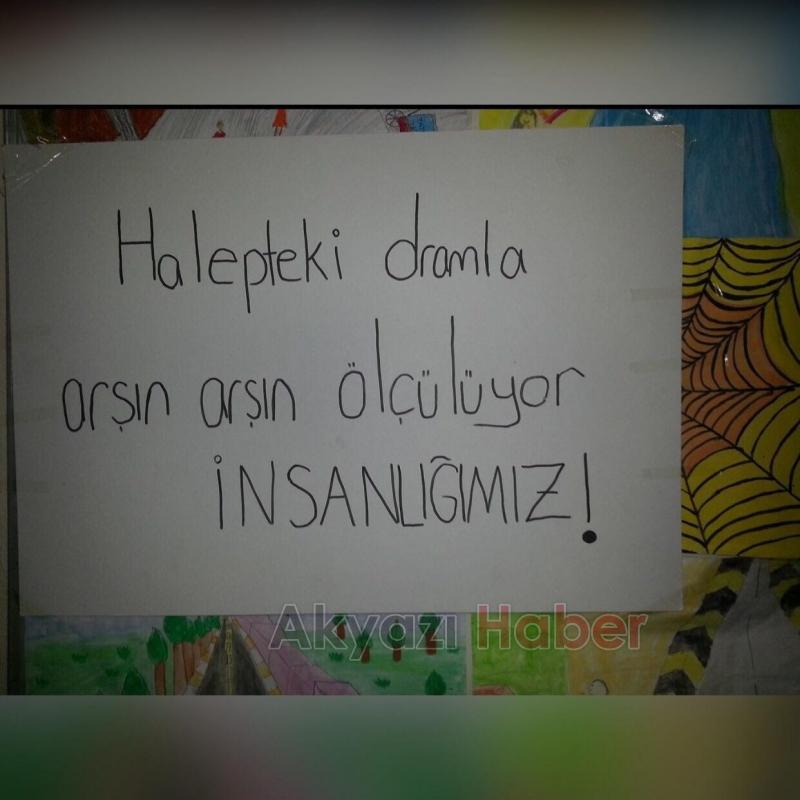 Halepteki dramla
arşın arşın ölçülüyor
İNSANLIĞIMIZ!
Akyazı Haber